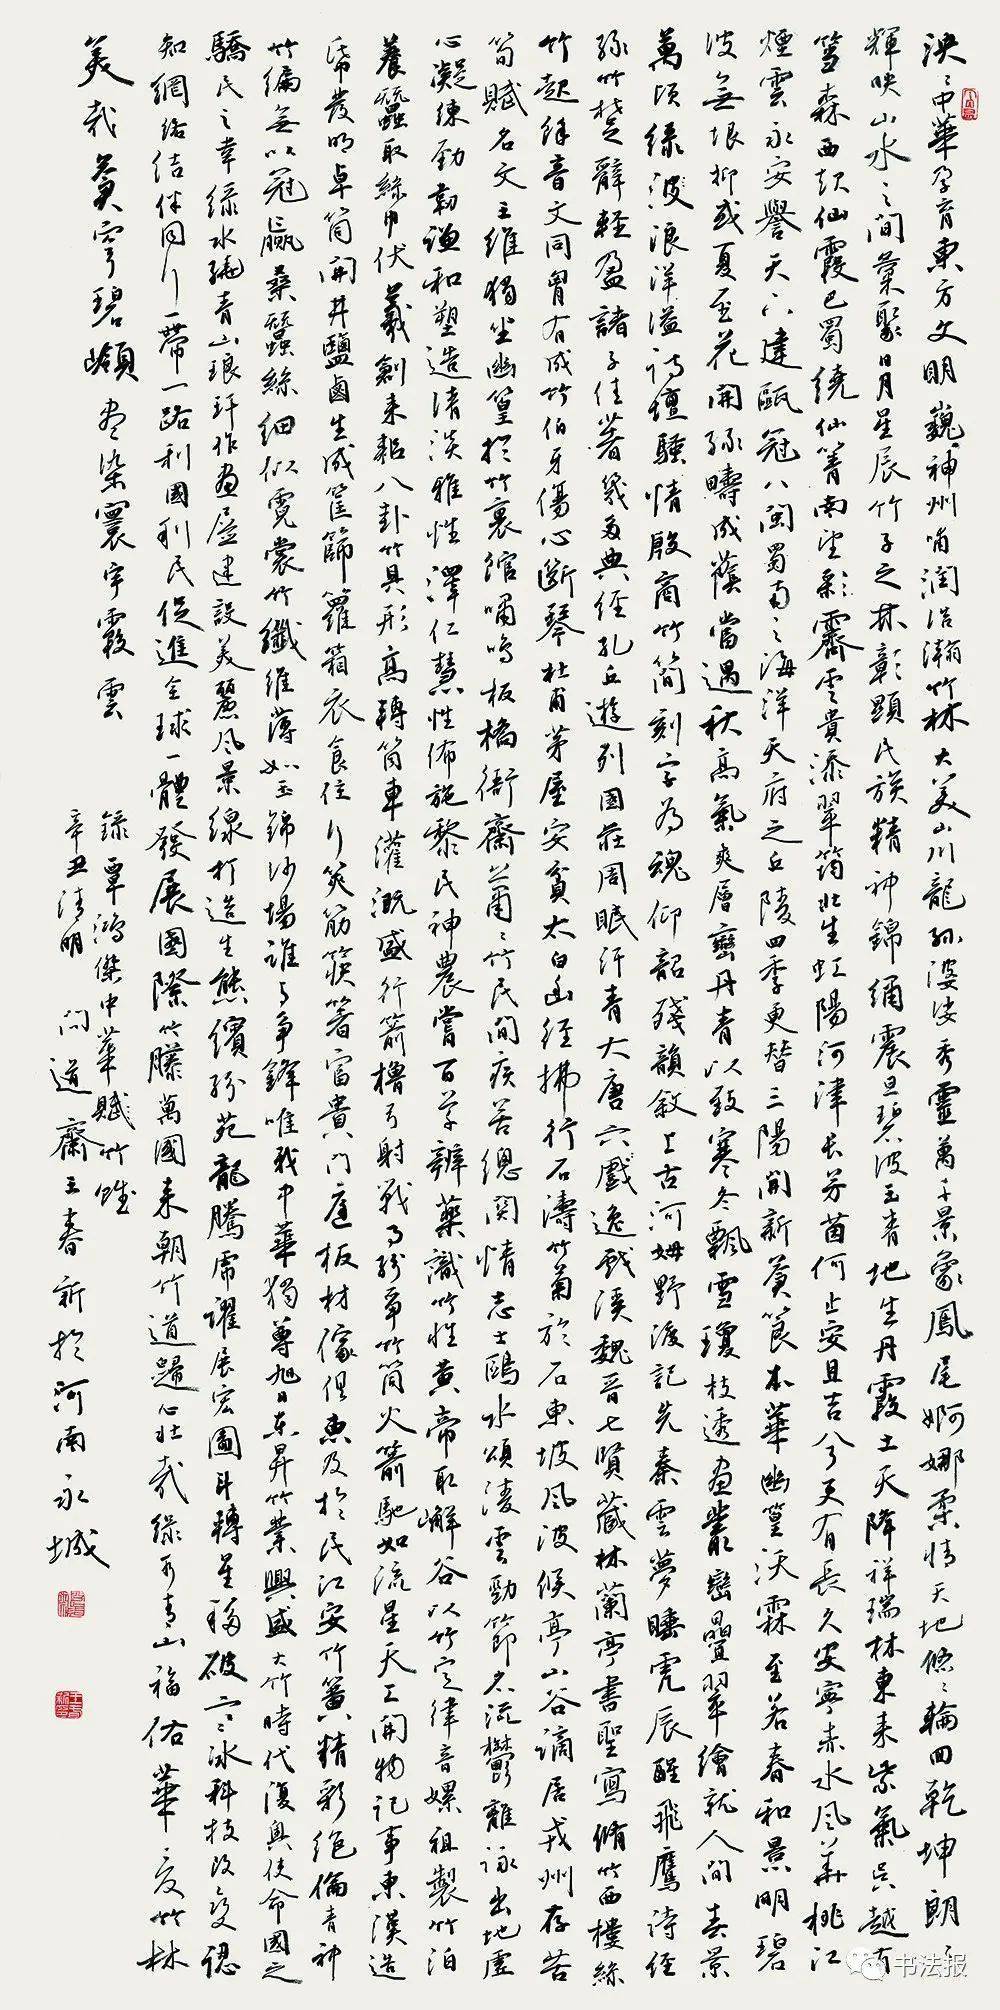 泱泱中華孕育東方文明巍巍神州滴潤浩瀚竹林大美山川龍孫婆娑秀靈萬千景象鳳尾婀娜柔情天地悠悠輪回乾坤朗朗
輝映山水之間彙聚日月星辰竹子之林彰顯民族精神錦繡震旦碧波玉青地生丹霞土天降祥瑞林東來紫氣吳越有
篁森西起仙霞巴蜀繞仙箐南望彩霽雲貴添翠筠北生虹陽河津長芬茵何止安且吉兮更有長久安寧赤水風華桃江
煙雲永安譽天下建甌冠八閩蜀南之海洋天府之丘陵四季更替三陽開新蒼筤本華幽篁沃霖至若春和景明碧
波無垠抑或夏至花開綠疇成蔭當遇秋高氣爽層巒丹青以致寒冬飄雪瓊枝透畫叢巒疊翠繪就人間美景
萬頃綠波浪洋溢詩壇騷情殷商竹簡刻字為魂仰韶殘韻敘上古河姆野渡記先秦雲夢睡虎辰醒飛鷹詩經
綠竹楚辭輕盈諸子佳著幾多典經孔丘遊列國莊周眠汗青大唐六戲逸戲溪魏晉七賢藏林蘭亭書聖寫脩竹西樓絲
竹起餘音文同胸有成竹伯牙傷心斷琴杜甫茅屋安貧太白幽經拂行石濤竹菊於石東坡風波候亭山谷謫居戎州存苦
筍賦名文王維獨坐幽篁於竹裏館嘯鳴板橋衙齋蕭蕭竹民間疾苦總關情志士鷗水頌淩雲勁節名流鬱離詠出地虛
心凝練勁韌謙和塑造清淡雅性澤仁慧性佈施黎民神農嘗百草辨藥識竹性黃帝取嶰谷以竹定律音嫘祖製竹泊
養蠶取絲巾伏羲創耒耜八卦竹具形高轉筒車灌溉盛行箭櫓弓射戰事紛爭竹筒火箭馳如流星天工開物記事東漢造
紙發明卓筒開井鹽鹵生成筐篩籮箱衣食住行筅筋筷箸富貴門庭板材傢俱惠及於民江安竹簧精彩絕倫青神
竹編無以冠贏桑蠶絲細似霓裳竹纖維薄如玉錦沙場誰與爭鋒唯我中華獨尊旭日東昇竹業興盛大竹時代復興使命國之
驕民之幸綠水繞青山琅玕作畫屏建設美麗風景線打造生態繽紛苑龍騰虎躍展宏圖斗轉星移破堅冰科技改變認
知網絡結伴同行一帶一路利國利民促進全球一體發展國際竹藤萬國來朝竹道歸心壯哉綠水青山福佑華夏竹林
美哉蒼穹碧嶺盡染寰宇霞雲
錄覃鴻傑中華賦竹雅
辛丑清明 問道齋王春新於河南永城
书法报